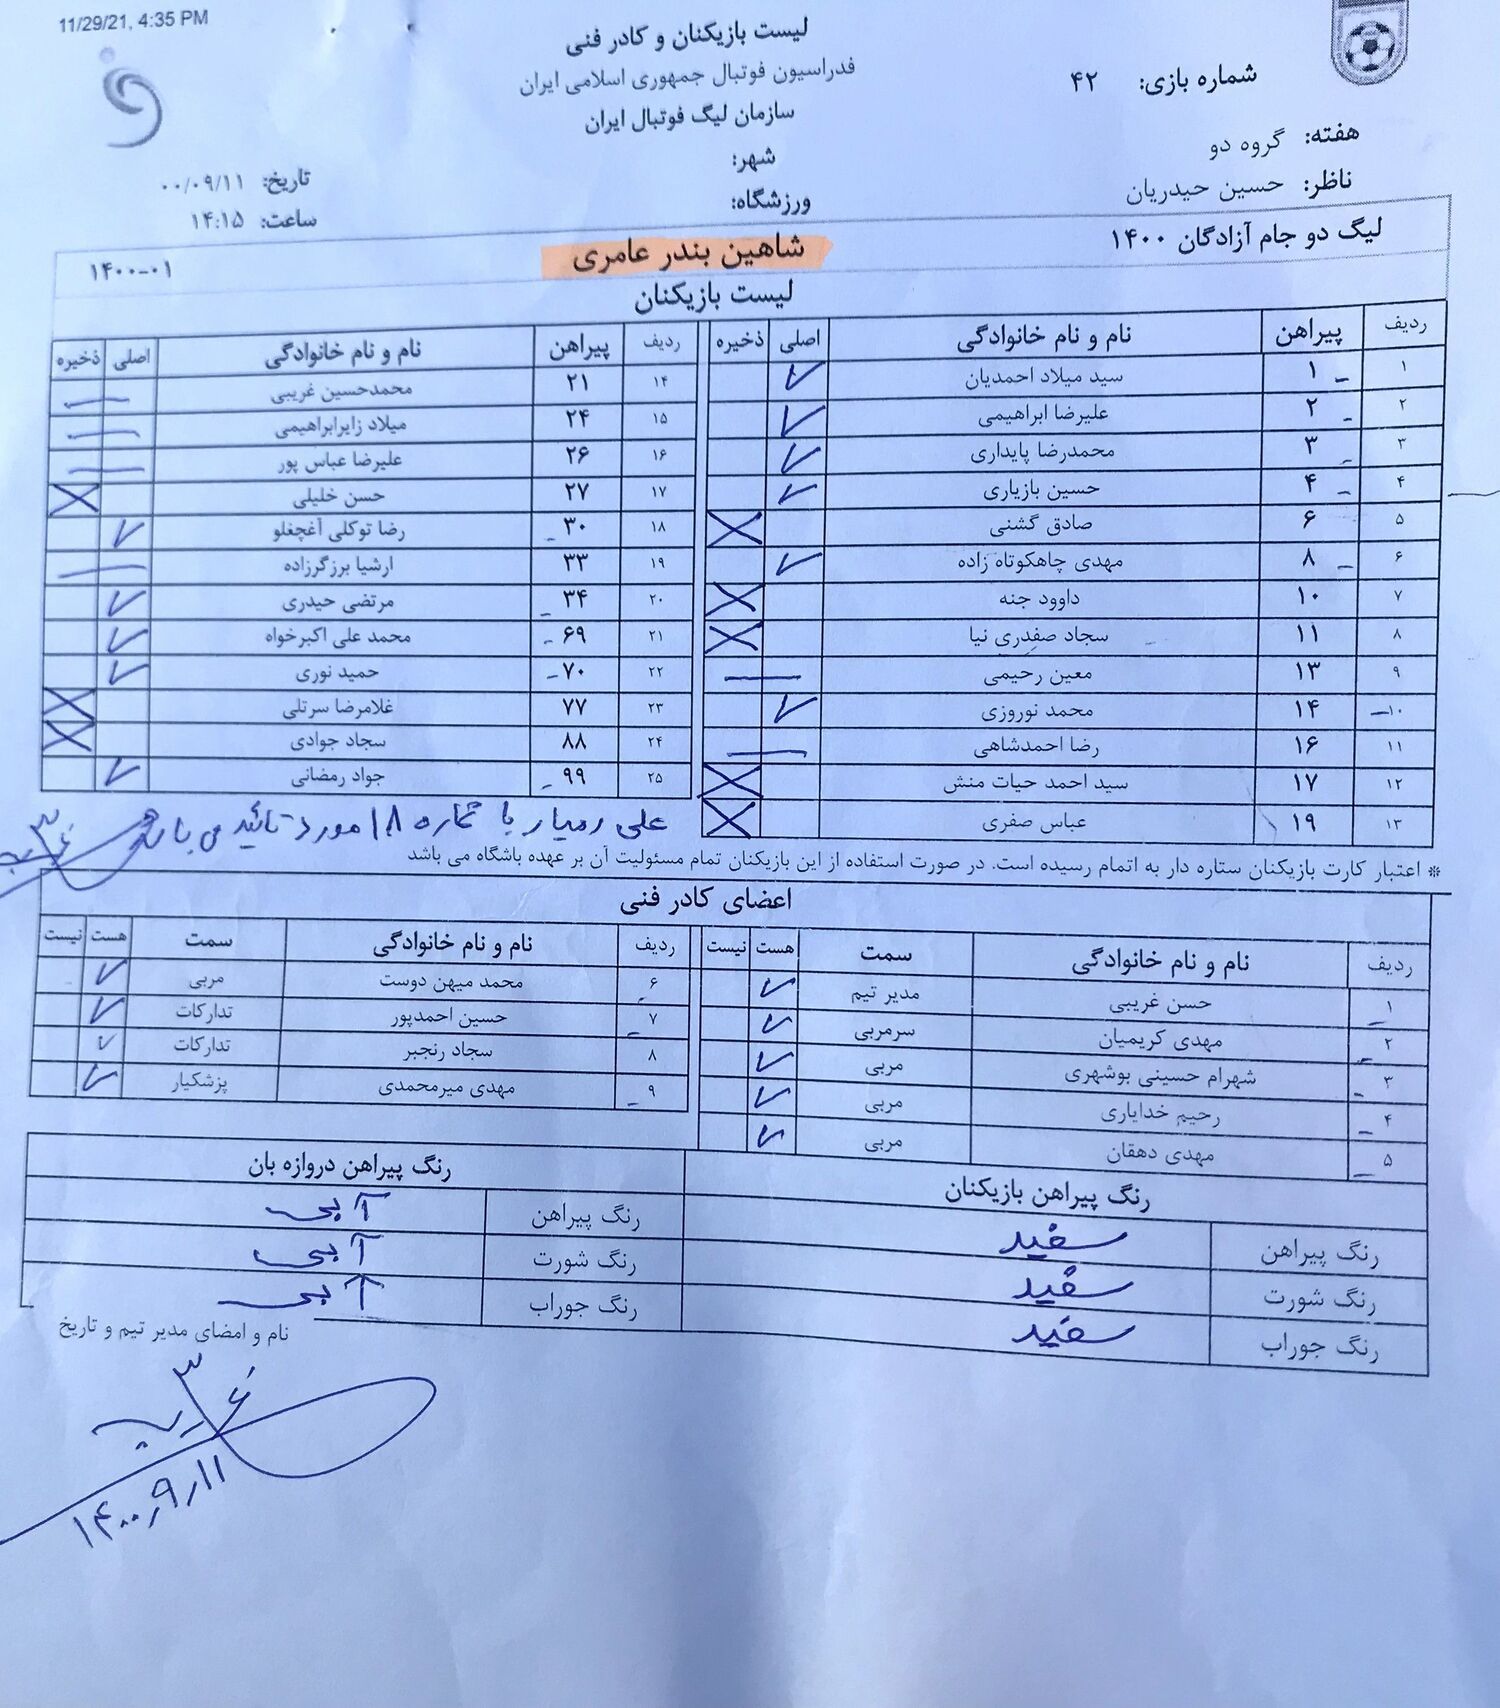 11/29/21, 4:35 PM
لیست بازیکنان و کادر فنی
فدراسیون فوتبال جمهوری اسلامی ایران
سازمان لیگ فوتبال ایران
شماره بازی: ۴۲
هفته: گروه دو
شهر:
ناظر: حسین حیدریان
ورزشگاه:
تاریخ: ۰۰/۰۹/۱۱
ساعت: ۱۴:۱۵
لیگ دو جام آزادگان ۱۴۰۰
شاهین بندر عامری
۱۴۰۰-۰۱
لیست بازیکنان
ردیف پیراهن نام و نام خانوادگی اصلی ذخیره
۱ ۱ سید میلاد احمدیان
۲ ۲ علیرضا ابراهیمی
۳ ۳ محمدرضا پایداری
۴ ۴ حسین بازیاری
۵ ۶ صادق گشنی
۶ ۸ مهدی چاهکوتاه زاده
۷ ۱۰ داوود جنه
۸ ۱۱ سجاد صفدری نیا
۹ ۱۳ معین رحیمی
۱۰ ۱۴ محمد نوروزی
۱۱ ۱۶ رضا احمدشاهی
۱۲ ۱۷ سید احمد حیات منش
۱۳ ۱۹ عباس صفری
ردیف پیراهن نام و نام خانوادگی اصلی ذخیره
۱۴ ۲۱ محمدحسین غریبی
۱۵ ۲۴ میلاد زایرابراهیمی
۱۶ ۲۶ علیرضا عباس پور
۱۷ ۲۷ حسن خلیلی
۱۸ ۳۰ رضا توکلی آغچغلو
۱۹ ۳۳ ارشیا برزگرزاده
۲۰ ۳۴ مرتضی حیدری
۲۱ ۶۹ محمد علی اکبرخواه
۲۲ ۷۰ حمید نوری
۲۳ ۷۷ غلامرضا سرتلی
۲۴ ۸۸ سجاد جوادی
۲۵ ۹۹ جواد رمضانی
علی رمیار با شماره ۱۸ مورد تائید می باشد
* اعتبار کارت بازیکنان ستاره دار به اتمام رسیده است. در صورت استفاده از این بازیکنان تمام مسئولیت آن بر عهده باشگاه می باشد
اعضای کادر فنی
ردیف نام و نام خانوادگی سمت هست نیست
۱ حسن غریبی مدیر تیم
۲ مهدی کریمیان سرمربی
۳ شهرام حسینی بوشهری مربی
۴ رحیم خدایاری مربی
۵ مهدی دهقان مربی
ردیف نام و نام خانوادگی سمت هست نیست
۶ محمد میهن دوست مربی
۷ حسین احمدپور تدارکات
۸ سجاد رنجبر تدارکات
۹ مهدی میرمحمدی پزشکیار
رنگ پیراهن بازیکنان
رنگ پیراهن سفید
رنگ شورت سفید
رنگ جوراب سفید
رنگ پیراهن دروازه بان
رنگ پیراهن آبی
رنگ شورت آبی
رنگ جوراب آبی
نام و امضای مدیر تیم و تاریخ
۱۴۰۰٫۹٫۱۱